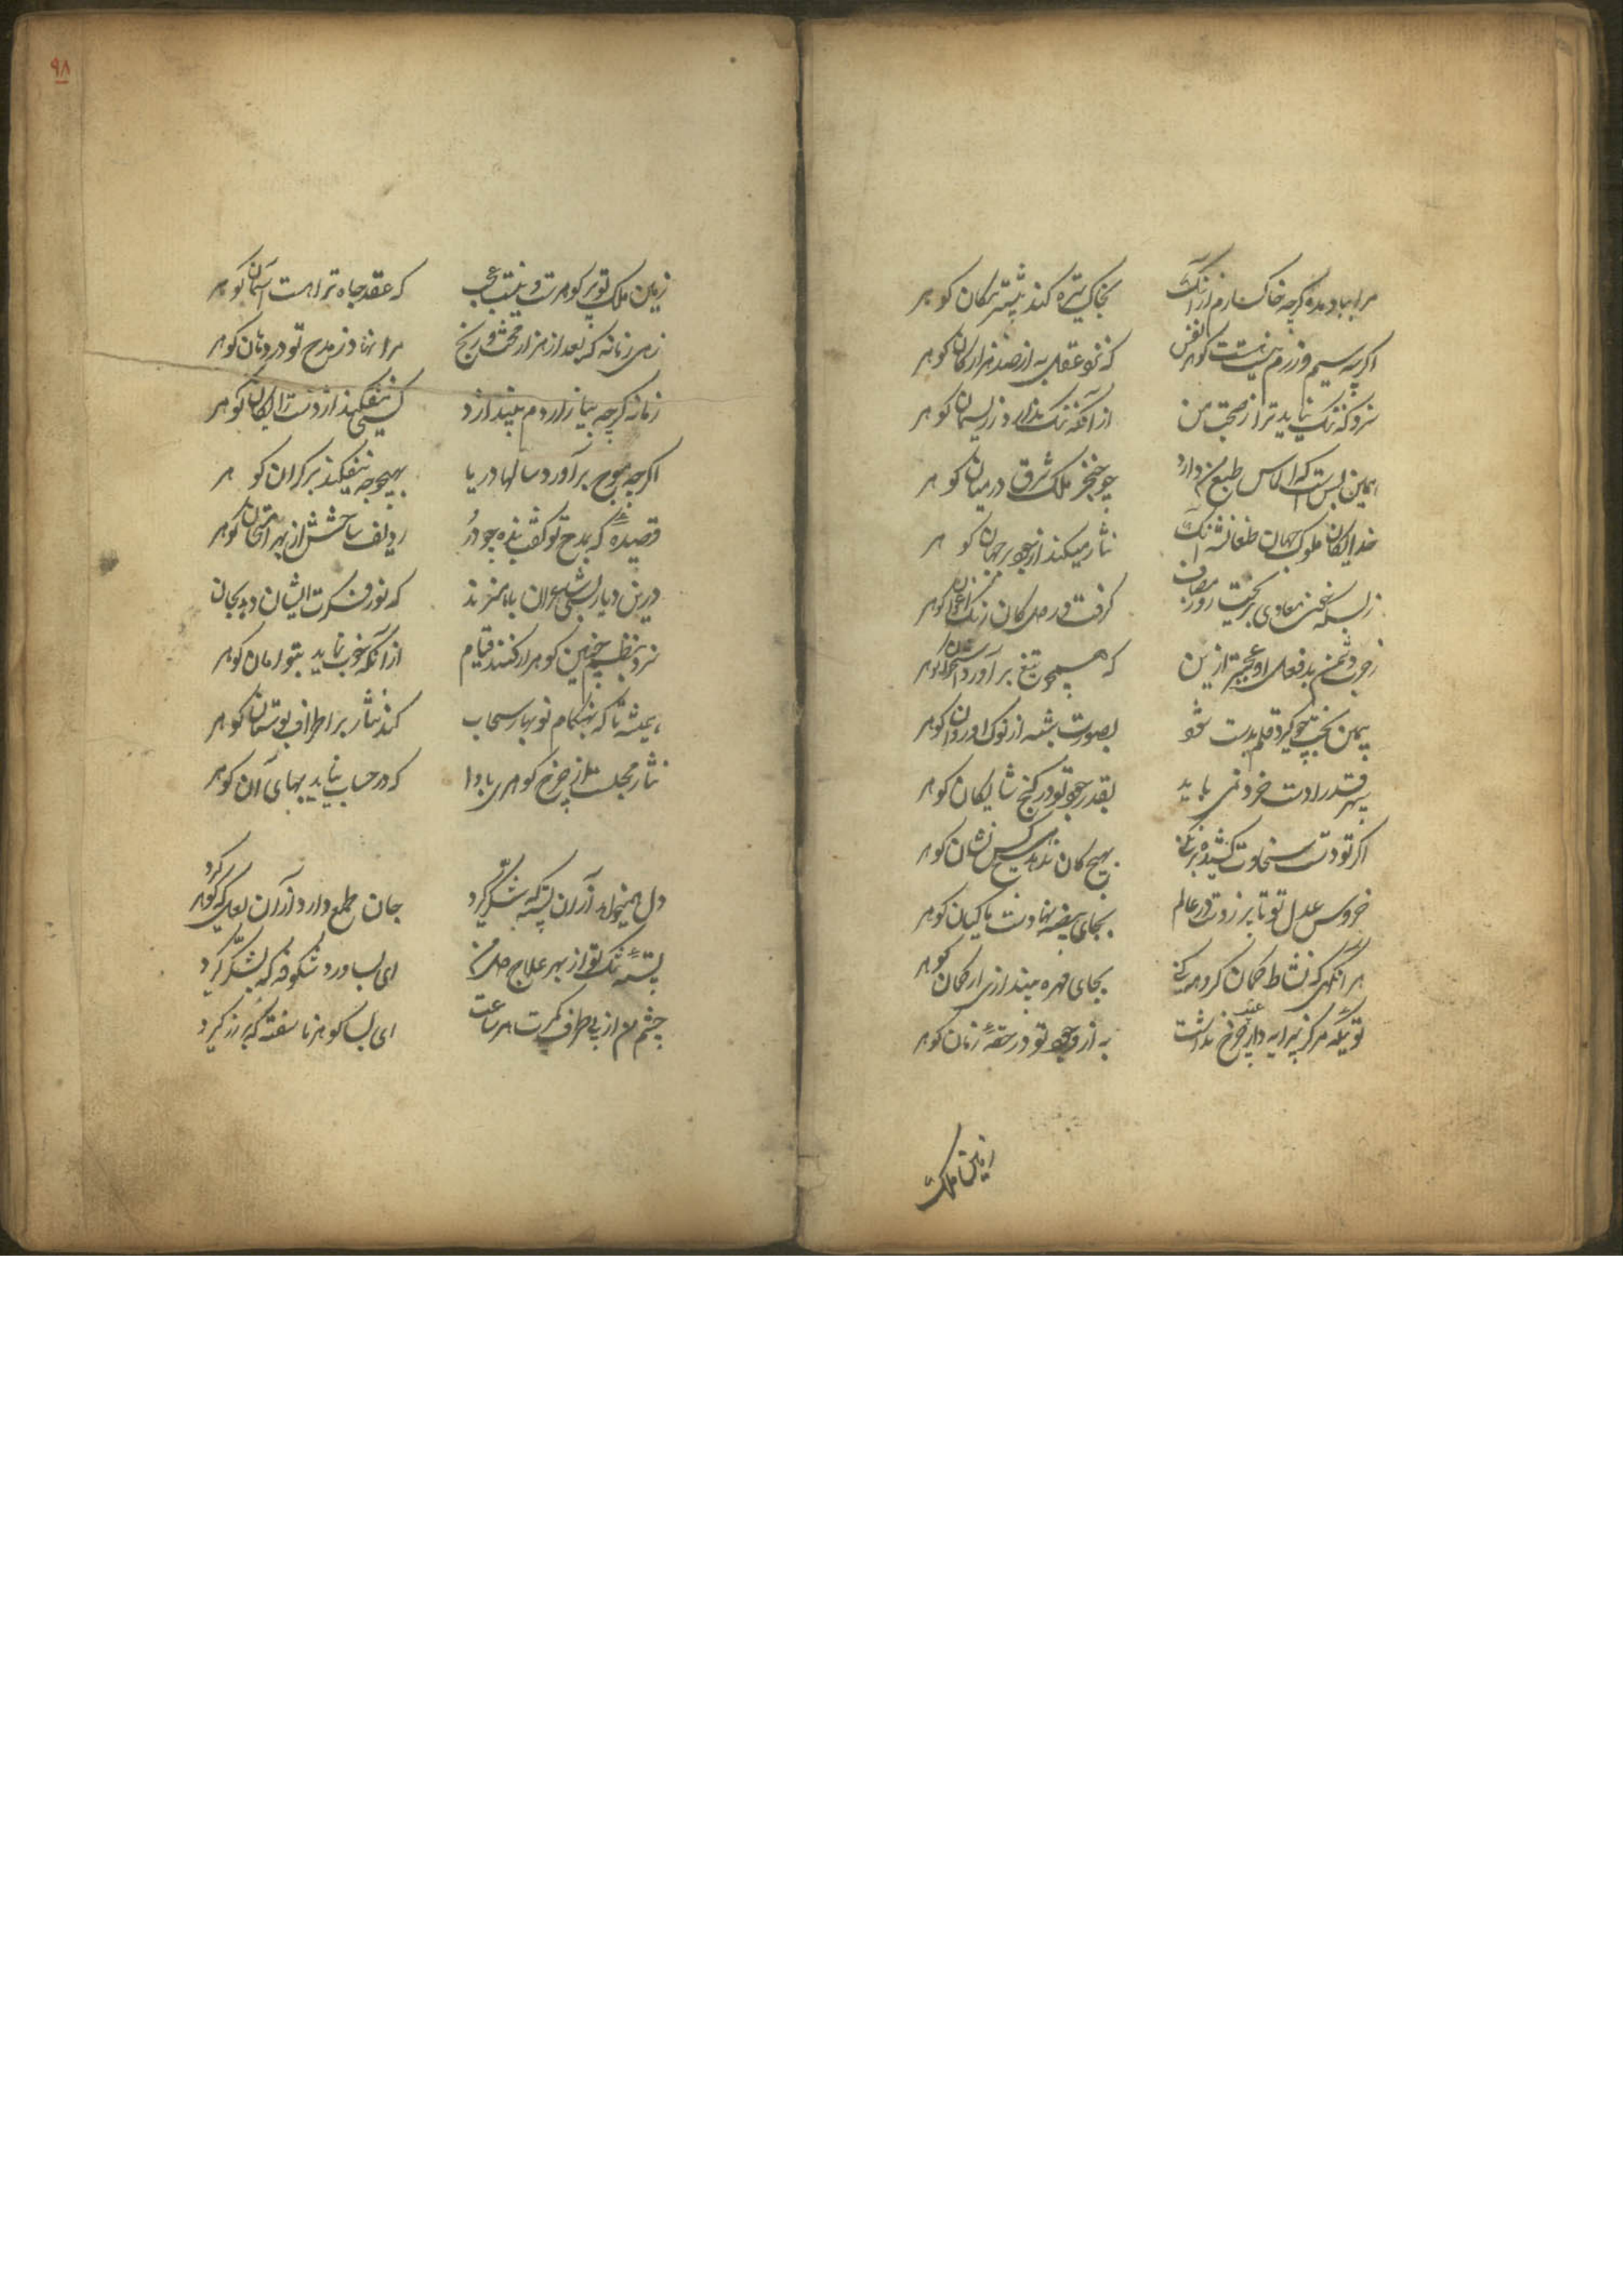 مرا بباد مده گرچه خاکسارم از آنک
بخاک تیره کند بیشتر مکان کوهر
اگرچه سیم و زرم نیست هست کوهر نفس
که نزد عقل به از صد هزار کان کوهر
سزد که ننگ نیاید ترا ز صحبت من
از آنکه ننگ ندارد ز ریسمان کوهر
همین بس است که الماس طبع من دارد
چو خنجر ملک شرق در میان کوهر
خدایکان ملوک جهان طغانشه آنک
نثار میکند از جود بر جهان کوهر
ز بسکه خون معادی بریخت روز مصاف
گرفت در دل کان رنگ ارغوان کوهر
ز جود دشمن بدفعل او عجبتر ازین
که همچو تیغ برآورد استخوان کوهر
بیمن بخت چو گیرد قلم بدست شود
بصورت شبه از نوک او روان کوهر
سپهر قدرا دست خرد نمی یابد
بقدر جود تو در گنج شایگان کوهر
اگر تو دست سخاوت کشیده تر نکنی
بهیچ کان ندهد هیچکس نشان کوهر
خروس عدل تو تا پر زدست در عالم
بجای بیضه نهادست ماکیان کوهر
هر آنگهی که نشاط کمان گروهه کنی
بجای مهره بیندازی از کمان کوهر
تویی که مرکز پیرایه دار چرخ نداشت
به از وجود تو در حقه زمان کوهر
زمین ملک
زمین ملک تو پر کوهرست و نیست عجب
که عقد جاه ترا هست آسمان کوهر
زهی زمانه که بعد از هزار محنت و رنج
مرا نهاد ز مدح تو در دهان کوهر
زمانه گرچه بیازاردم نیندازد
کسی نیفکند از دست رایگان کوهر
اگرچه موج برآورد سالها دریا
بهیچوجه نیفکند بر کران کوهر
قصیده که بمدح تو گفت بنده چو در
ردیف ساختش از بهر امتحان کوهر
درین دیار بسی شاعران باهنرند
که نور فکرت ایشان دهد بجان
سزد بنظم چنین کوهر ار کنند قیام
از آنکه خوب نماید بتوامان کوهر
همیشه تا که بهنگام نوبهار سحاب
کند نثار بر اطراف بوستان کوهر
نثار مجلست از چرخ کوهری بادا
که در حساب نیاید بهای آن کوهر
دل همیخواهد از آن پسته که شکر گیرد
جان طمع دارد از آن لعل که کوهر گیرد
پسته تنگ تو از بهر علاج دل من
ای بسا ورد شکوفه که بشکر گیرد
چشم من از پی طرف کمرت هر ساعت
ای بسا کوهر ناسفته که در زر گیرد